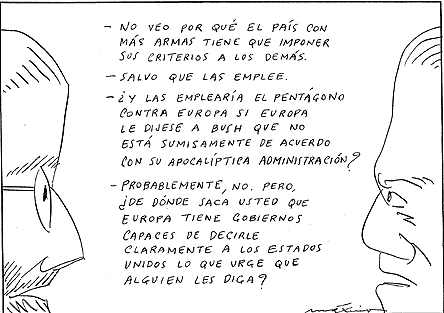 - NO VEO POR QUÉ EL PAÍS CON
MÁS ARMAS TIENE QUE IMPONER
SUS CRITERIOS A LOS DEMÁS.
- SALVO QUE LAS EMPLEE.
- ¿Y LAS EMPLEARÍA EL PENTÁGONO
CONTRA EUROPA SI EUROPA
LE DIJESE A BUSH QUE NO
ESTÁ SUMISAMENTE DE ACUERDO
CON SU APOCALÍPTICA ADMINISTRACIÓN?
- PROBABLEMENTE, NO. PERO,
¿DE DÓNDE SACA USTED QUE
EUROPA TIENE GOBIERNOS
CAPACES DE DECIRLE
CLARAMENTE A LOS ESTADOS
UNIDOS LO QUE URGE QUE
ALGUIEN LES DIGA?
máximo